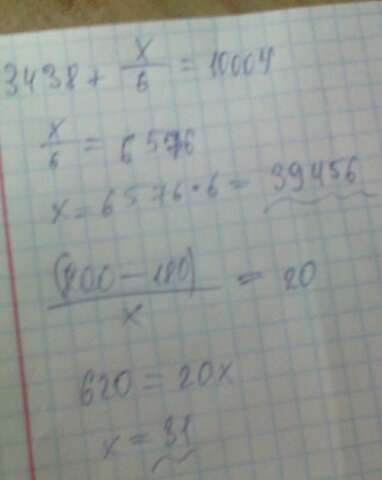 3438 + x/6 = 10004
x/6 = 6576
x = 6576 · 6 = 39456
(800 - 180)/x = 20
620 = 20x
x = 31